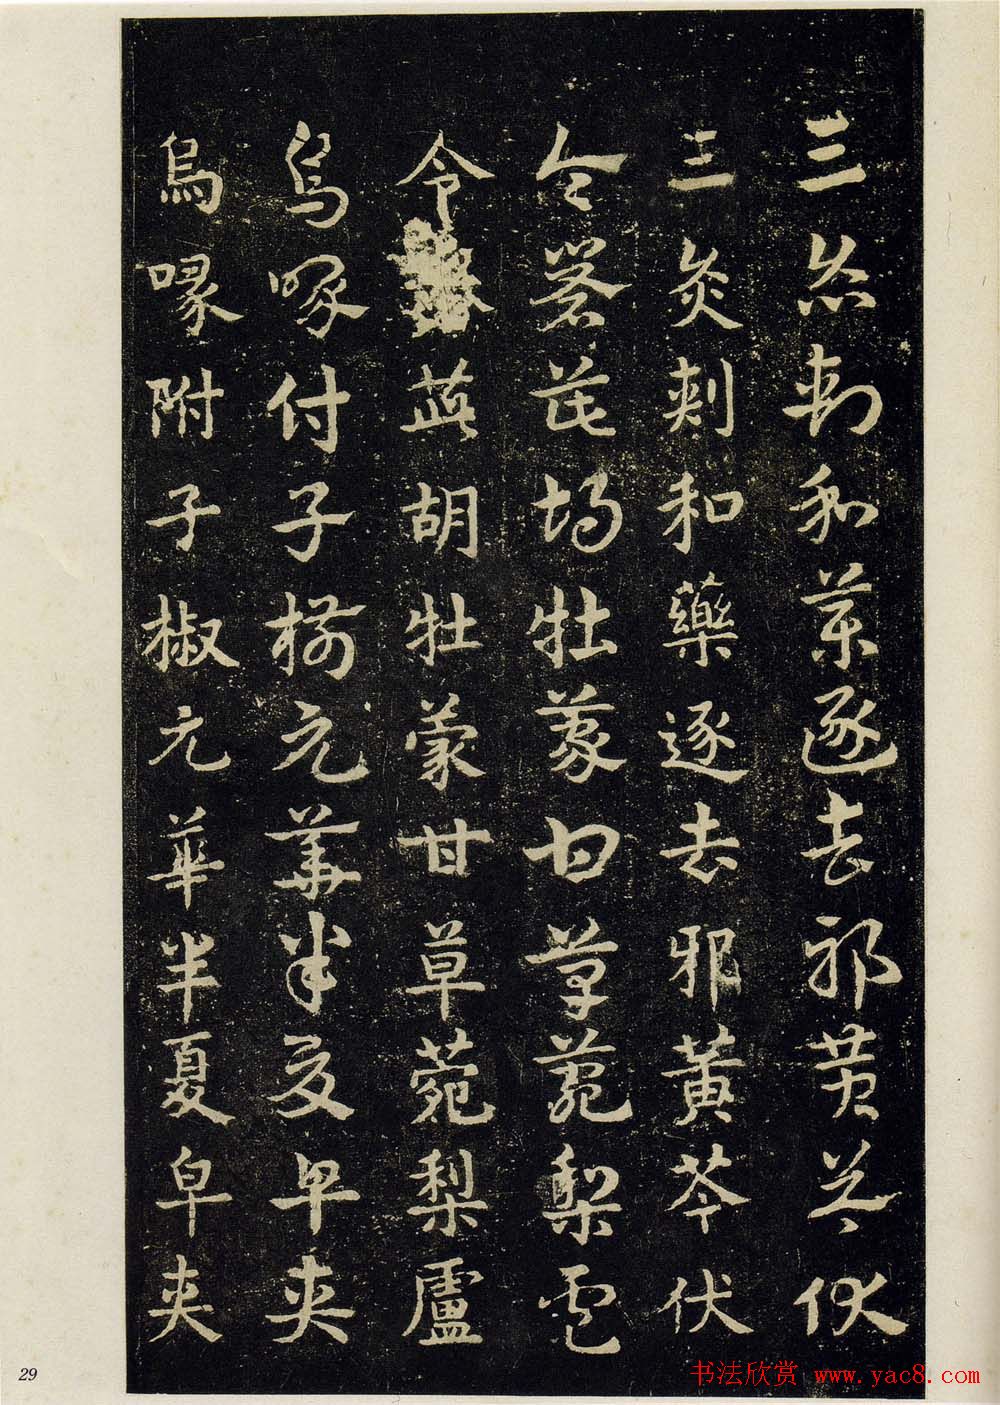 三灸刺和藥逐去邪黃芩伏
三灸刺和藥逐去邪黃芩伏
令礜茈胡牡蒙甘草菀梨盧
令茈胡牡蒙甘草菀梨盧
烏喙付子椒元華半夏皁夾
烏喙附子椒元華半夏皁夾
29
书法欣赏 www.yac8.com